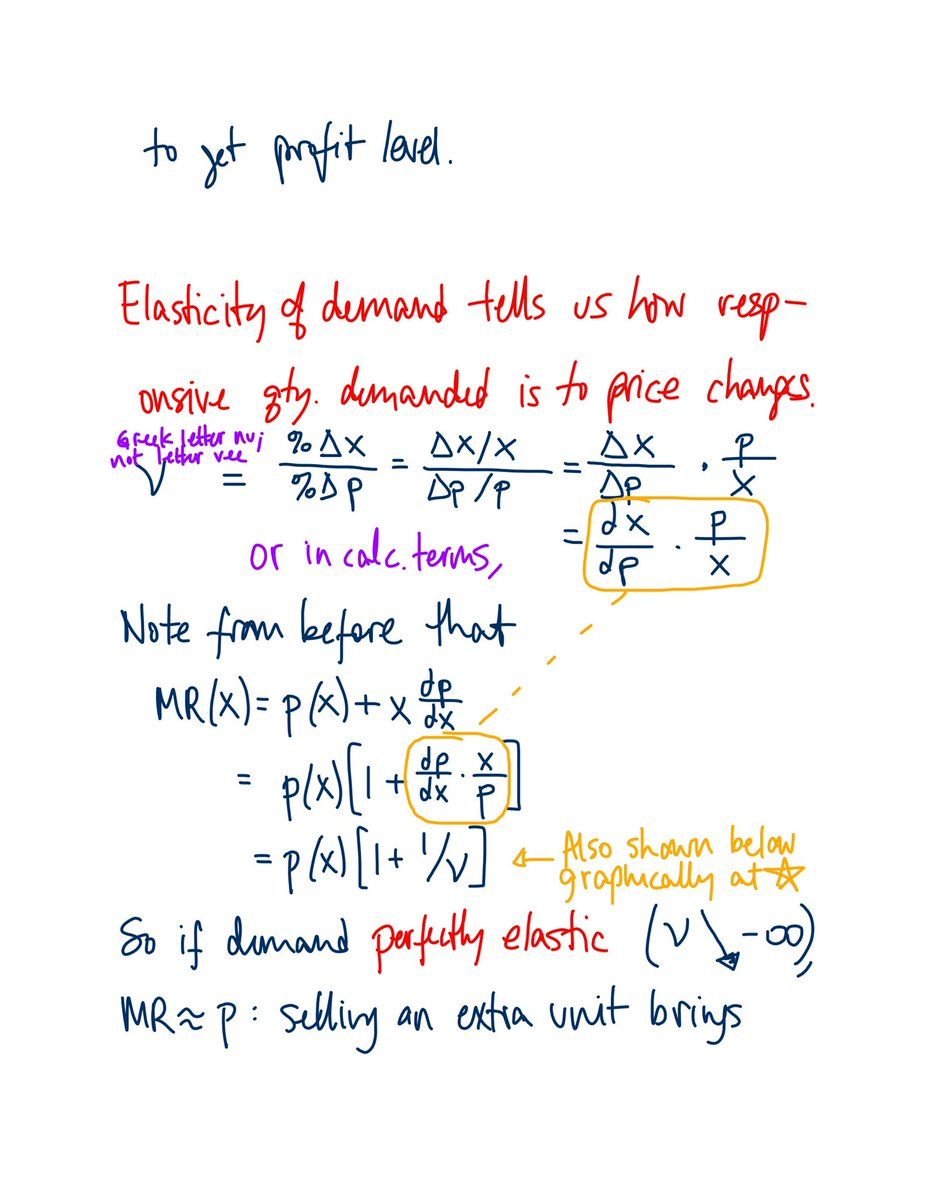 to get profit level.
Elasticity of demand tells us how resp-
onsive qty. demanded is to price changes.
Greek letter nu;
not letter vee
ν = %ΔX / %Δp = ΔX/X / Δp/p = ΔX/Δp · p/X
or in calc. terms, = dx/dp · p/x
Note from before that
MR(X) = p(x) + x dp/dx
= p(x)[1 + dp/dx · x/p]
= p(x)[1 + 1/ν] ← Also shown below
graphically at ☆
So if demand perfectly elastic (ν ↘ -∞),
MR ≈ p : selling an extra unit brings